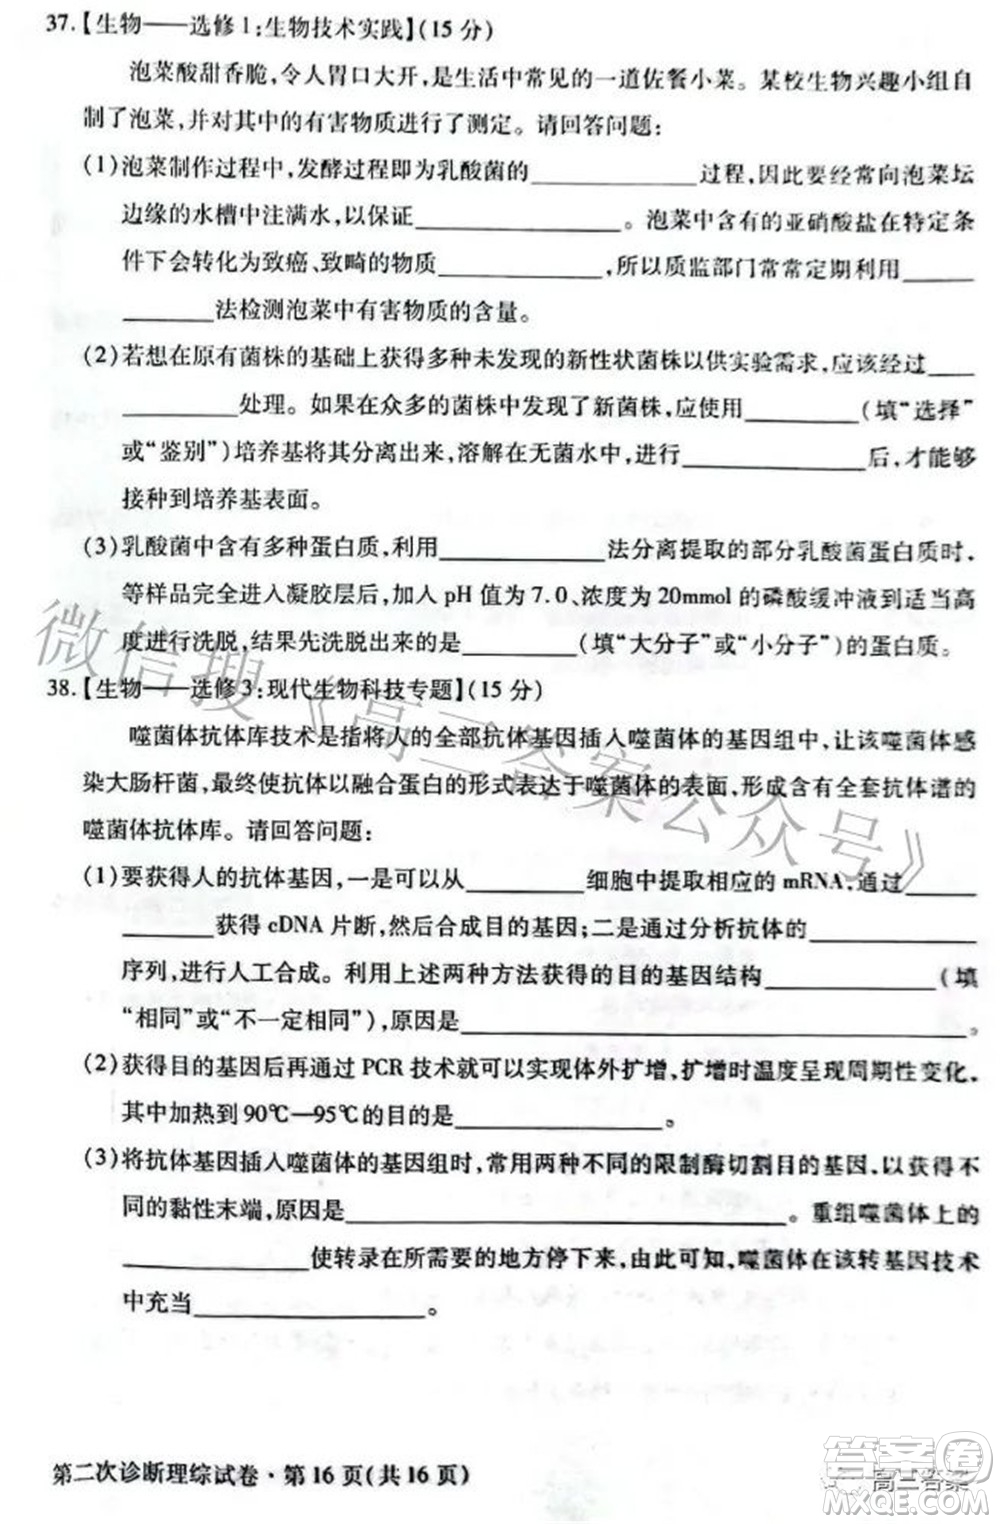 37.【生物——选修1:生物技术实践】(15分)
泡菜酸甜香脆,令人胃口大开,是生活中常见的一道佐餐小菜。某校生物兴趣小组自
制了泡菜,并对其中的有害物质进行了测定。请回答问题:
(1)泡菜制作过程中,发酵过程即为乳酸菌的__________过程,因此要经常向泡菜坛
边缘的水槽中注满水,以保证__________。泡菜中含有的亚硝酸盐在特定条
件下会转化为致癌、致畸的物质__________,所以质监部门常常定期利用____
______法检测泡菜中有害物质的含量。
(2)若想在原有菌株的基础上获得多种未发现的新性状菌株以供实验需求,应该经过___
_______处理。如果在众多的菌株中发现了新菌株,应使用_______(填“选择”
或“鉴别”)培养基将其分离出来,溶解在无菌水中,进行__________后,才能够
接种到培养基表面。
(3)乳酸菌中含有多种蛋白质,利用__________法分离提取的部分乳酸菌蛋白质时,
等样品完全进入凝胶层后,加入pH值为7.0、浓度为20mmol的磷酸缓冲液到适当高
度进行洗脱,结果先洗脱出来的是________(填“大分子”或“小分子”)的蛋白质。
38.【生物——选修3:现代生物科技专题】(15分)
噬菌体抗体库技术是指将人的全部抗体基因插入噬菌体的基因组中,让该噬菌体感
染大肠杆菌,最终使抗体以融合蛋白的形式表达于噬菌体的表面,形成含有全套抗体谱的
噬菌体抗体库。请回答问题:
(1)要获得人的抗体基因,一是可以从_______细胞中提取相应的mRNA,通过____
______获得cDNA片断,然后合成目的基因;二是通过分析抗体的__________
序列,进行人工合成。利用上述两种方法获得的目的基因结构__________(填
“相同”或“不一定相同”),原因是______________________________。
(2)获得目的基因后再通过PCR技术就可以实现体外扩增,扩增时温度呈现周期性变化,
其中加热到90℃—95℃的目的是____________。
(3)将抗体基因插入噬菌体的基因组时,常用两种不同的限制酶切割目的基因,以获得不
同的黏性末端,其目的是____________________。重组噬菌体上的
____________使转录在所需要的地方停下来,由此可知,噬菌体在该转基因技术
中充当______________。
第二次诊断理综试卷·第16页(共16页)
微信搜《高三答案公众号》
高三答案
答案圈
MXQE.COM